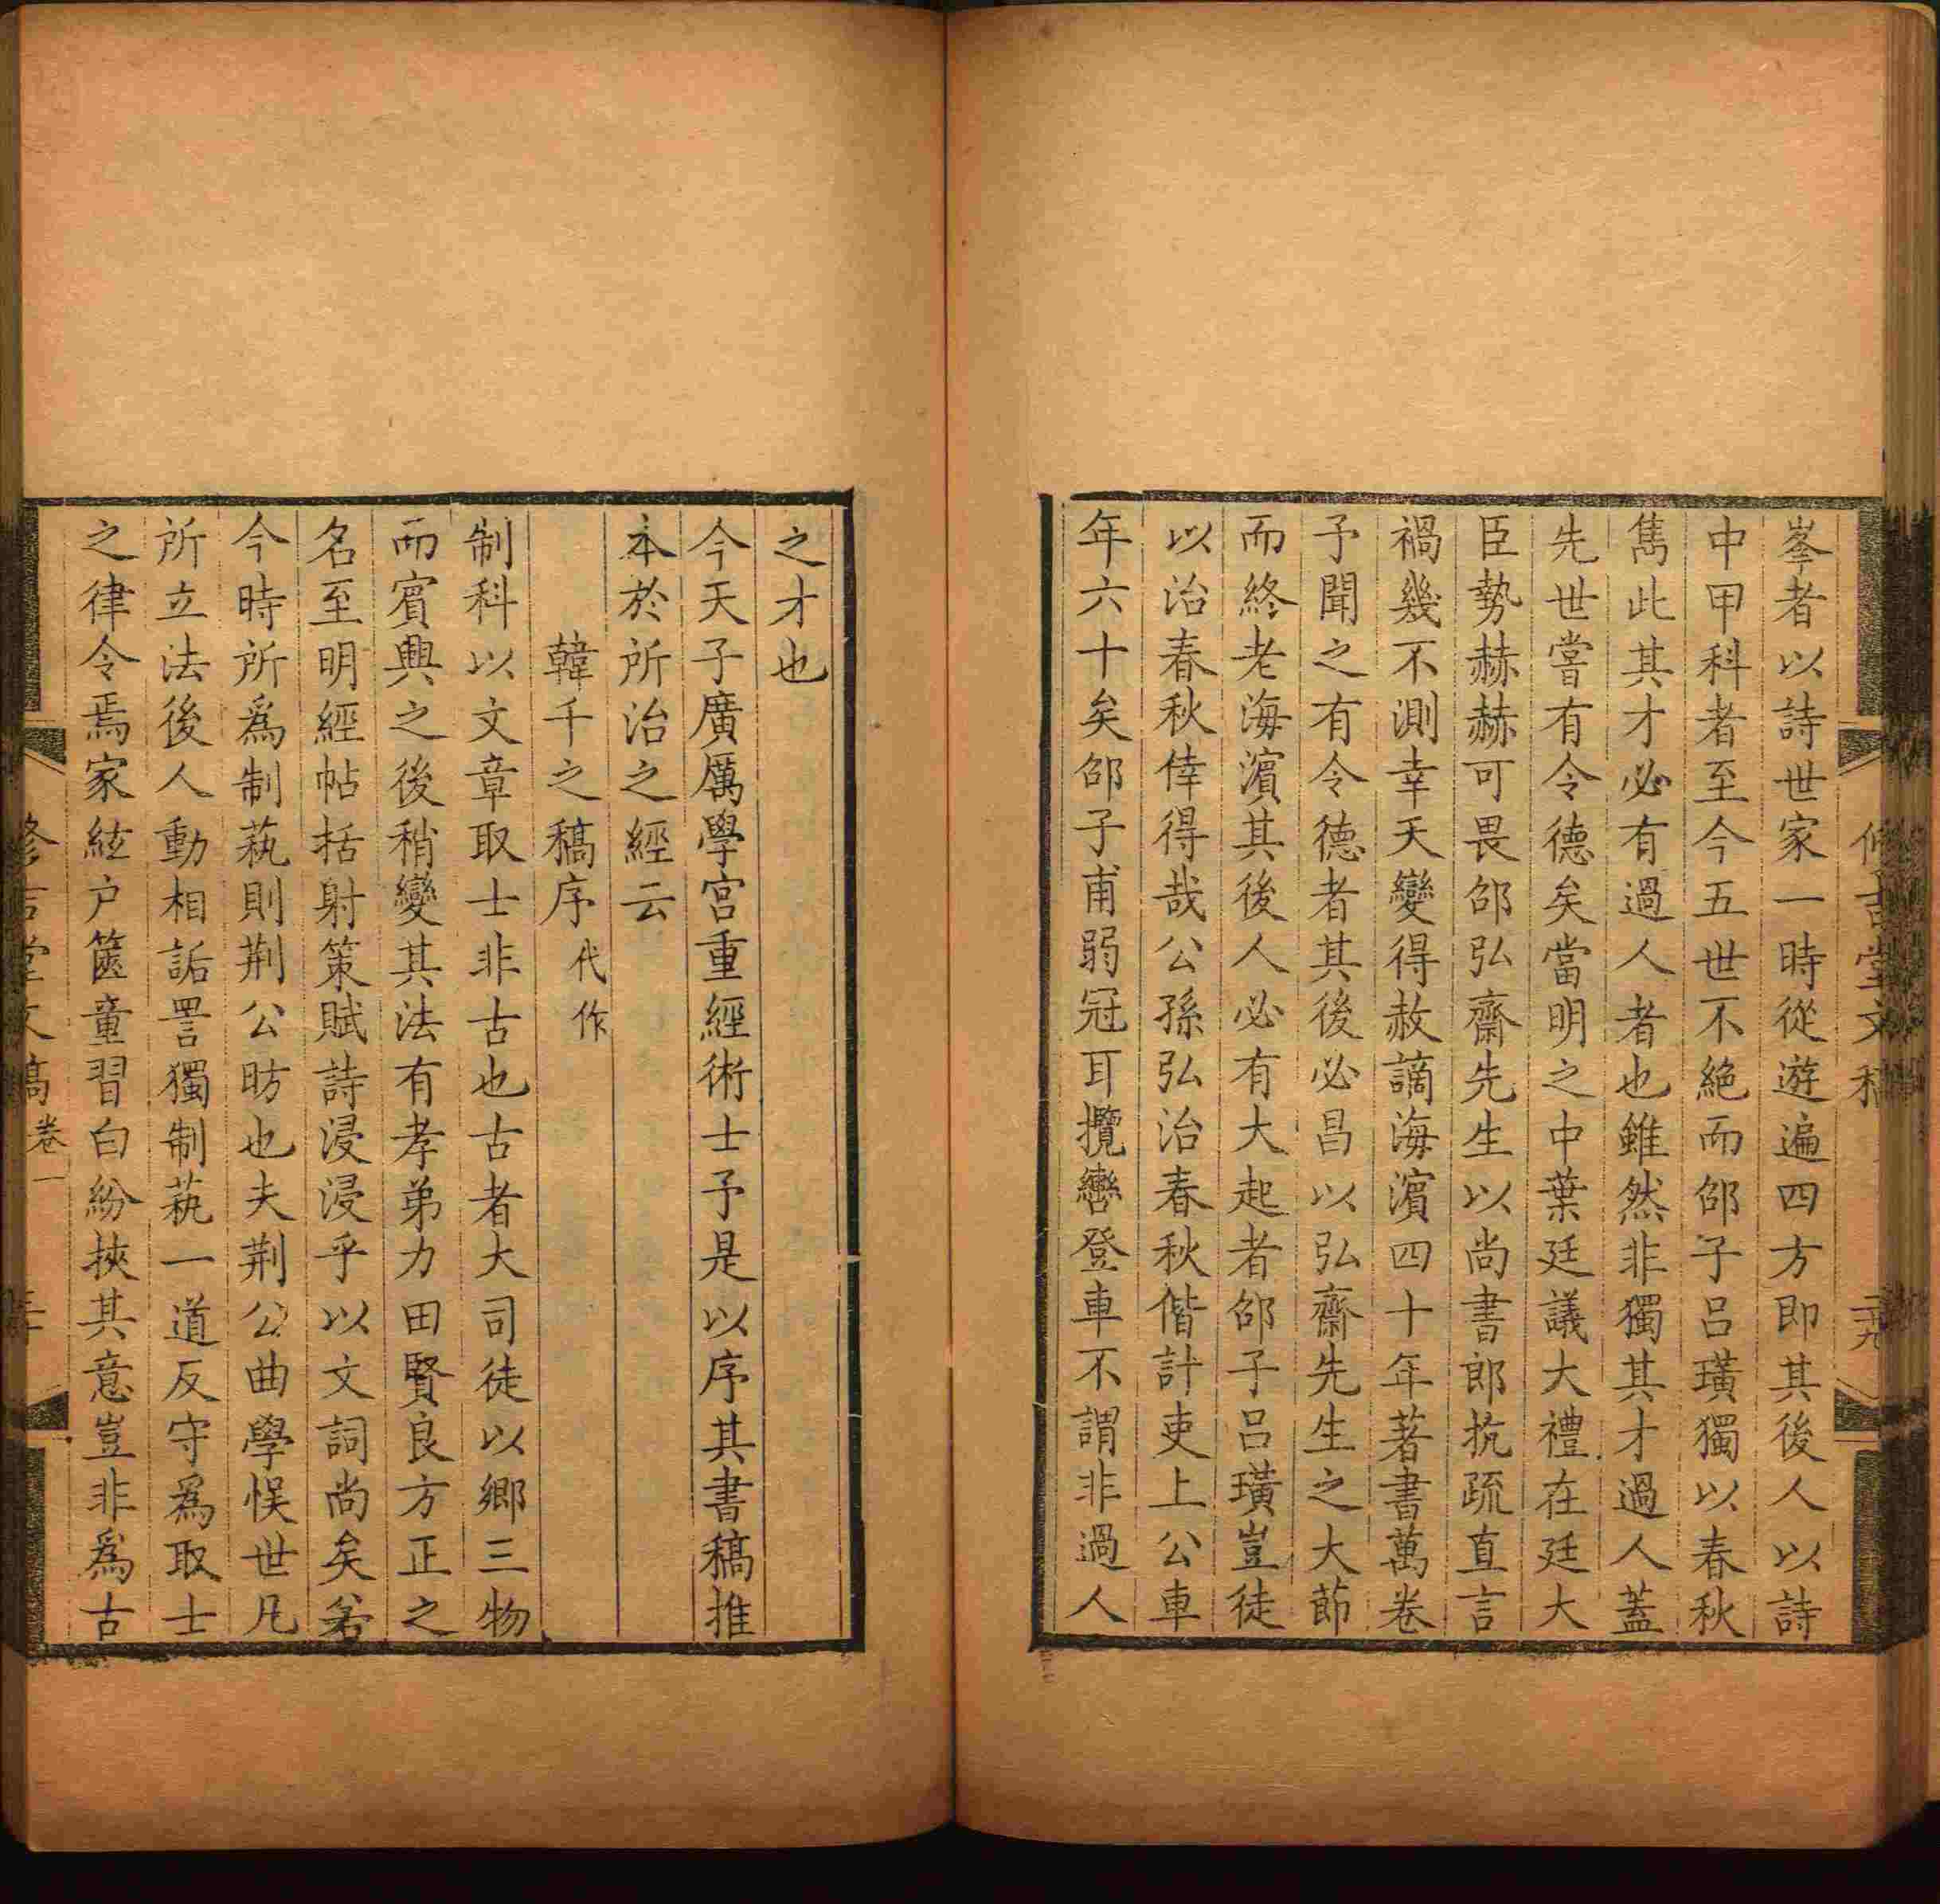 峯者以詩世家一時從遊遍四方即其後人以詩
中甲科者至今五世不絶而邵子呂璜獨以春秋
雋此其才必有過人者也雖然非獨其才過人蓋
先世嘗有令德矣當明之中葉廷議大禮在廷大
臣勢赫赫可畏邵弘齋先生以尚書郎抗疏直言
禍幾不測幸天變得赦謫海濵四十年著書萬卷
予聞之有令德者其後必昌以弘齋先生之大節
而終老海濵其後人必有大起者邵子呂璜豈徒
以治春秋倖得哉公孫弘治春秋偕計吏上公車
年六十矣邵子甫弱冠耳攬轡登車不謂非過人
之才也
今天子廣厲學宮重經術士予是以序其書稿推
本於所治之經云
韓千之稿序 代作
制科以文章取士非古也古者大司徒以鄉三物
而賓興之後稍變其法有孝弟力田賢良方正之
名至明經帖括射策賦詩浸浸乎以文詞尚矣若
今時所爲制蓺則荆公昉也夫荆公曲學悞世凡
所立法後人動相詬詈獨制蓺一道反守爲取士
之律令焉家絃户篋童習白紛挾其意豈非爲古
修吉堂文稿 卷一